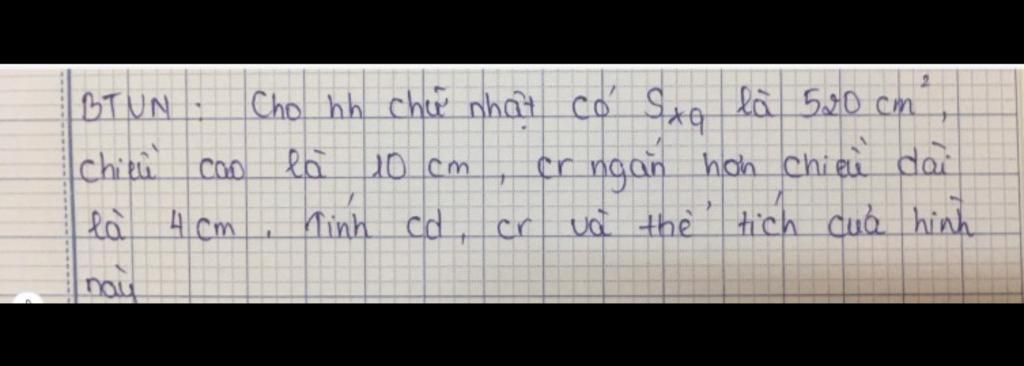 BTVN : Cho hh chữ nhật có Sxq là 520 cm²,
chiều cao là 10 cm, cr ngắn hơn chiều dài
là 4 cm. Tính cd, cr và thể tích quả hình
này